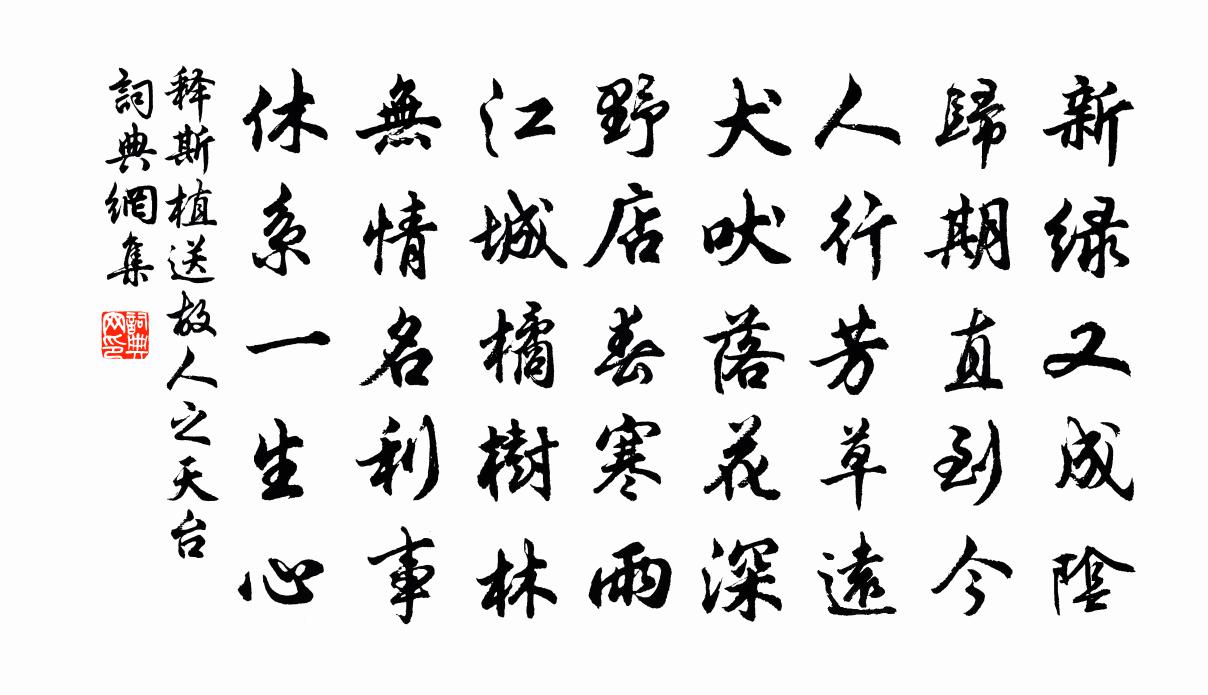 新绿又成陰
歸期直到今
人行芳草遠
犬吠落花深
野店春寒雨
江城橘樹林
無情名利事
休系一生心
释斯植送故人之天台
詞典網集
詞典网印